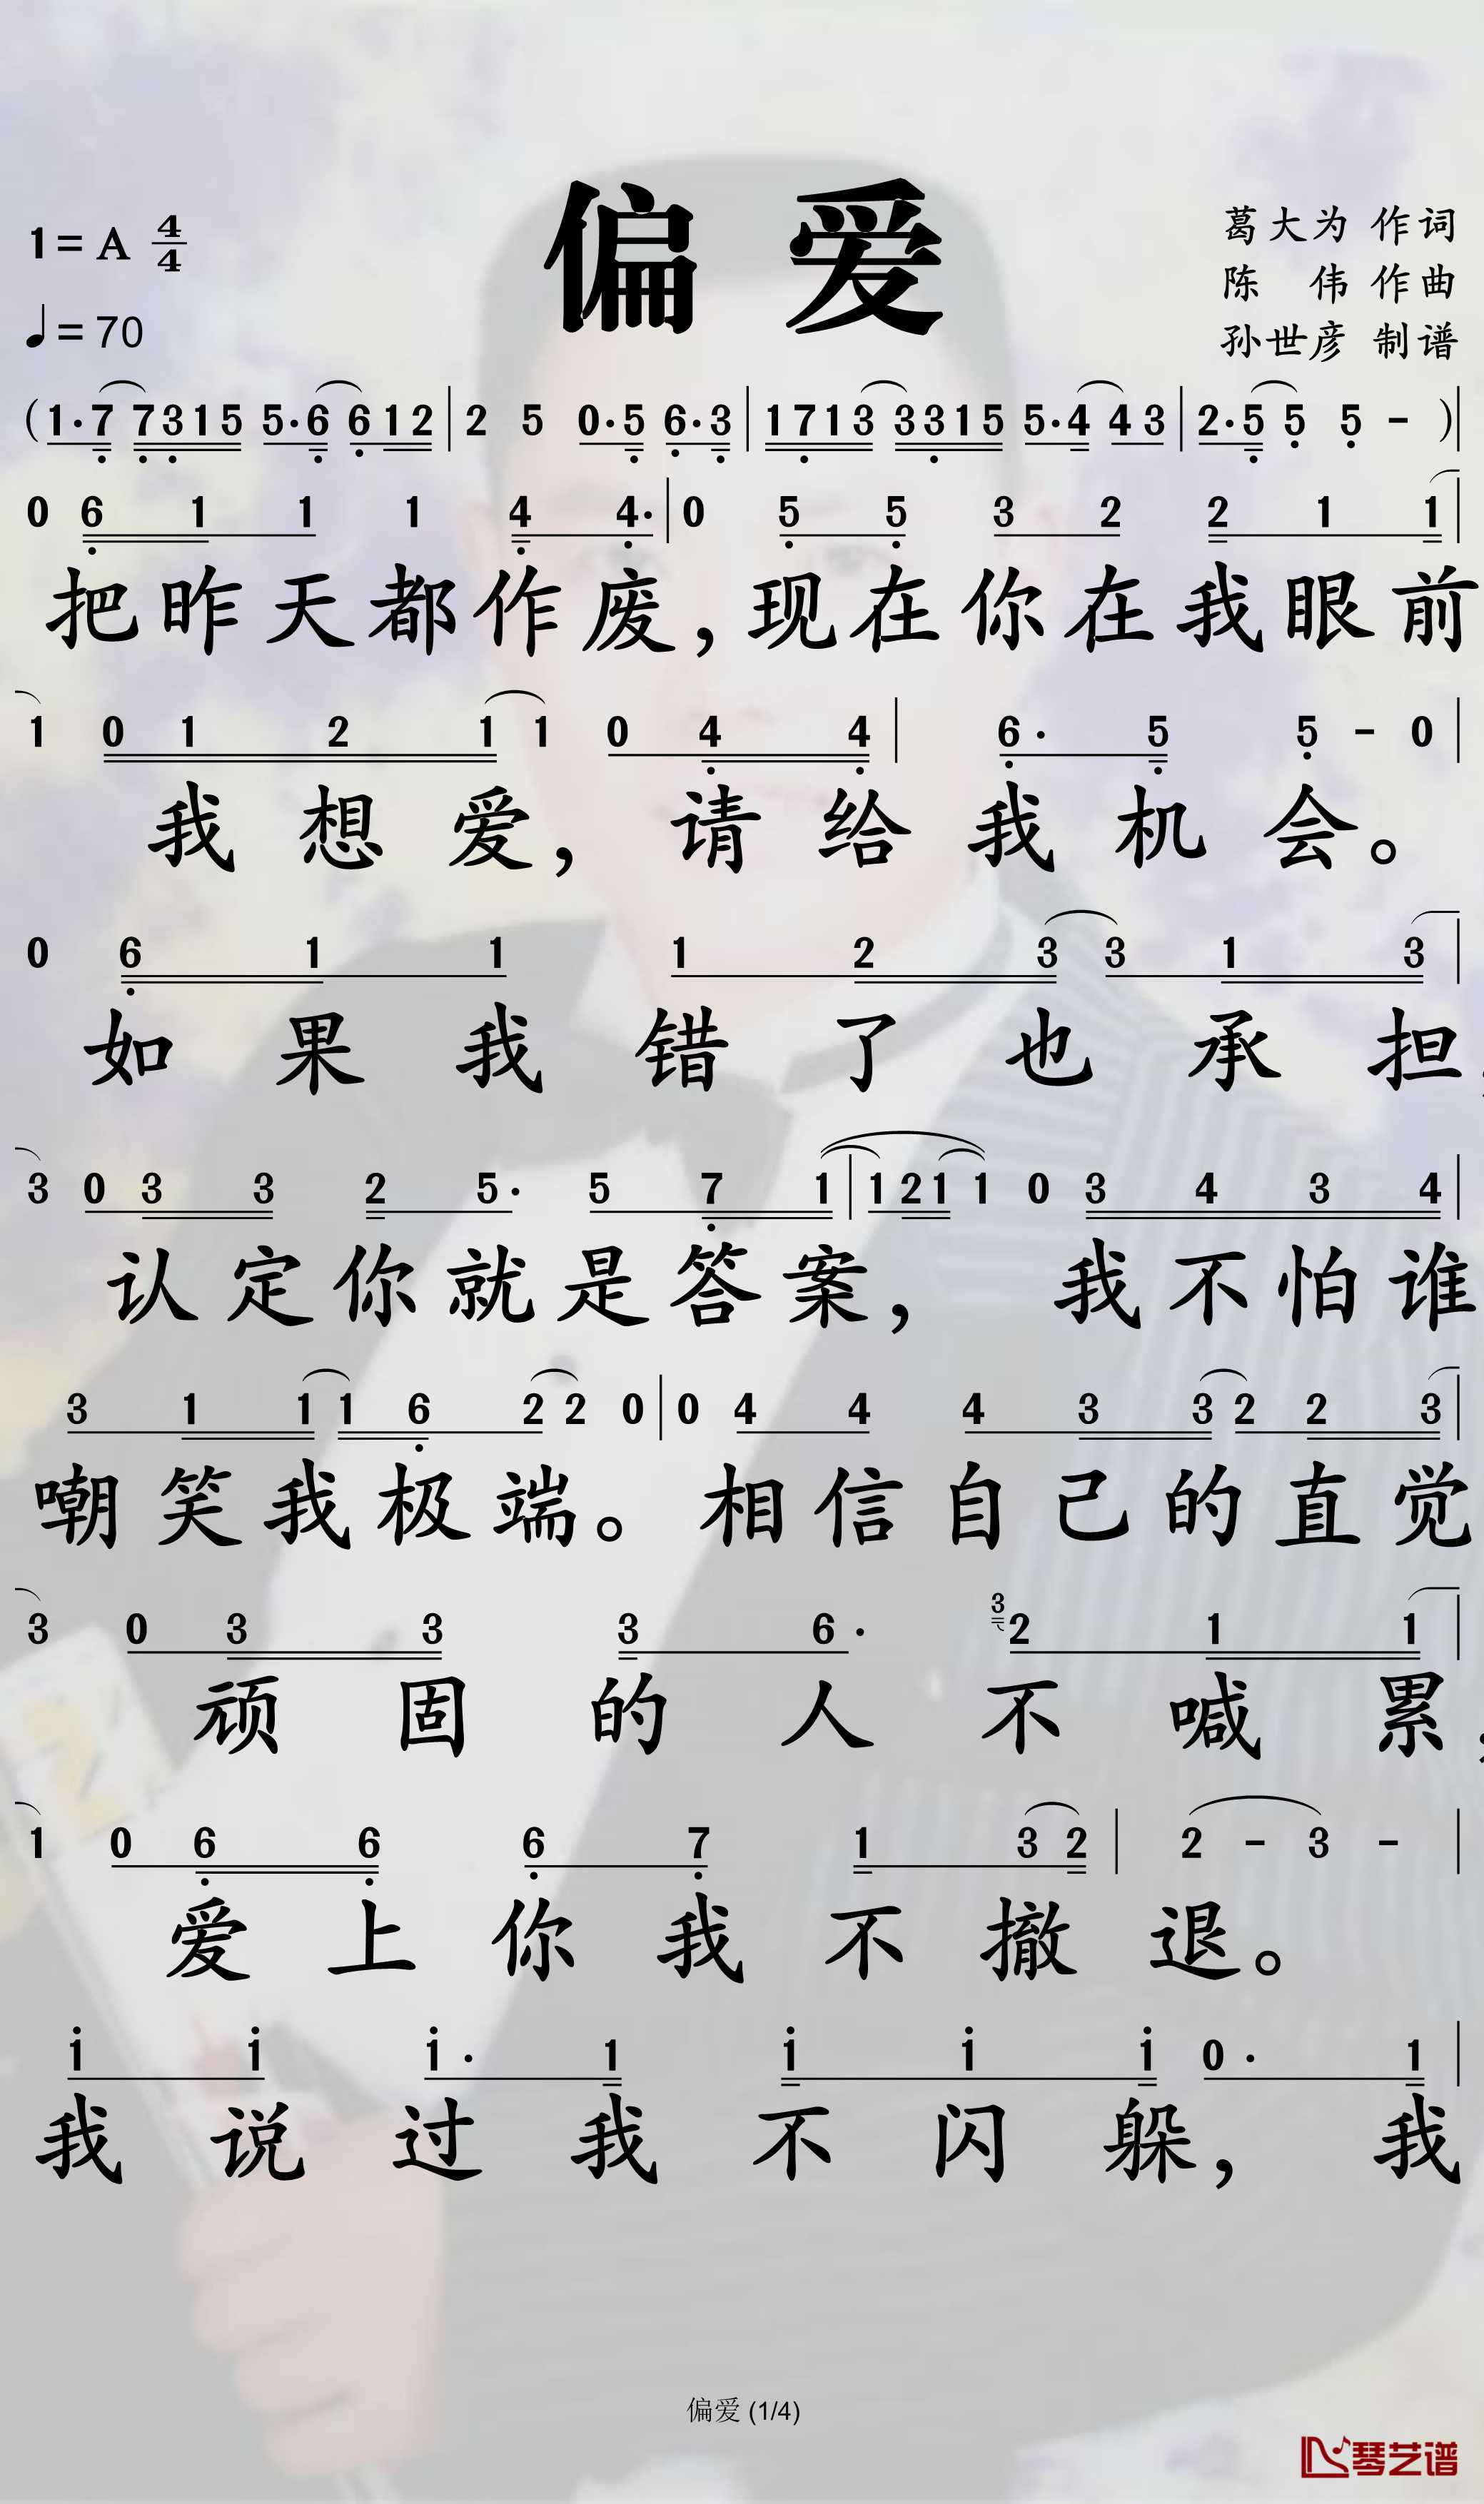 偏爱
1=A 4/4
♩=70
葛大为 作词
陈 伟 作曲
孙世彦 制谱
(1·7 7315 5·6 612|2 5 0·5 6·3|1713 3315 5·4 43|2·5 5 5 -)|
0 6 1 1 1 4 4·|0 5 5 3 2 2 1 1|
把昨天都作废,现在你在我眼前
1 0 1 2 1 1 0 4 4|6· 5 5 - 0|
我想爱,请给我机会。
0 6 1 1 1 2 3 3 1 3|
如果我错了也承担,
3 0 3 3 2 5· 5 7 1|1 2 1 1 0 3 4 3 4|
认定你就是答案,我不怕谁
3 1 1 1 6 2 2 0|0 4 4 4 3 3 2 2 3|
嘲笑我极端。相信自己的直觉
3 0 3 3 3 6· 3 2 1 1|
顽固的人不喊累,
1 0 6 6 6 7 1 3 2|2 - 3 -|
爱上你我不撤退。
i i i· 1 i i i 0· 1|
我说过我不闪躲,我
偏爱 (1/4)
琴艺谱